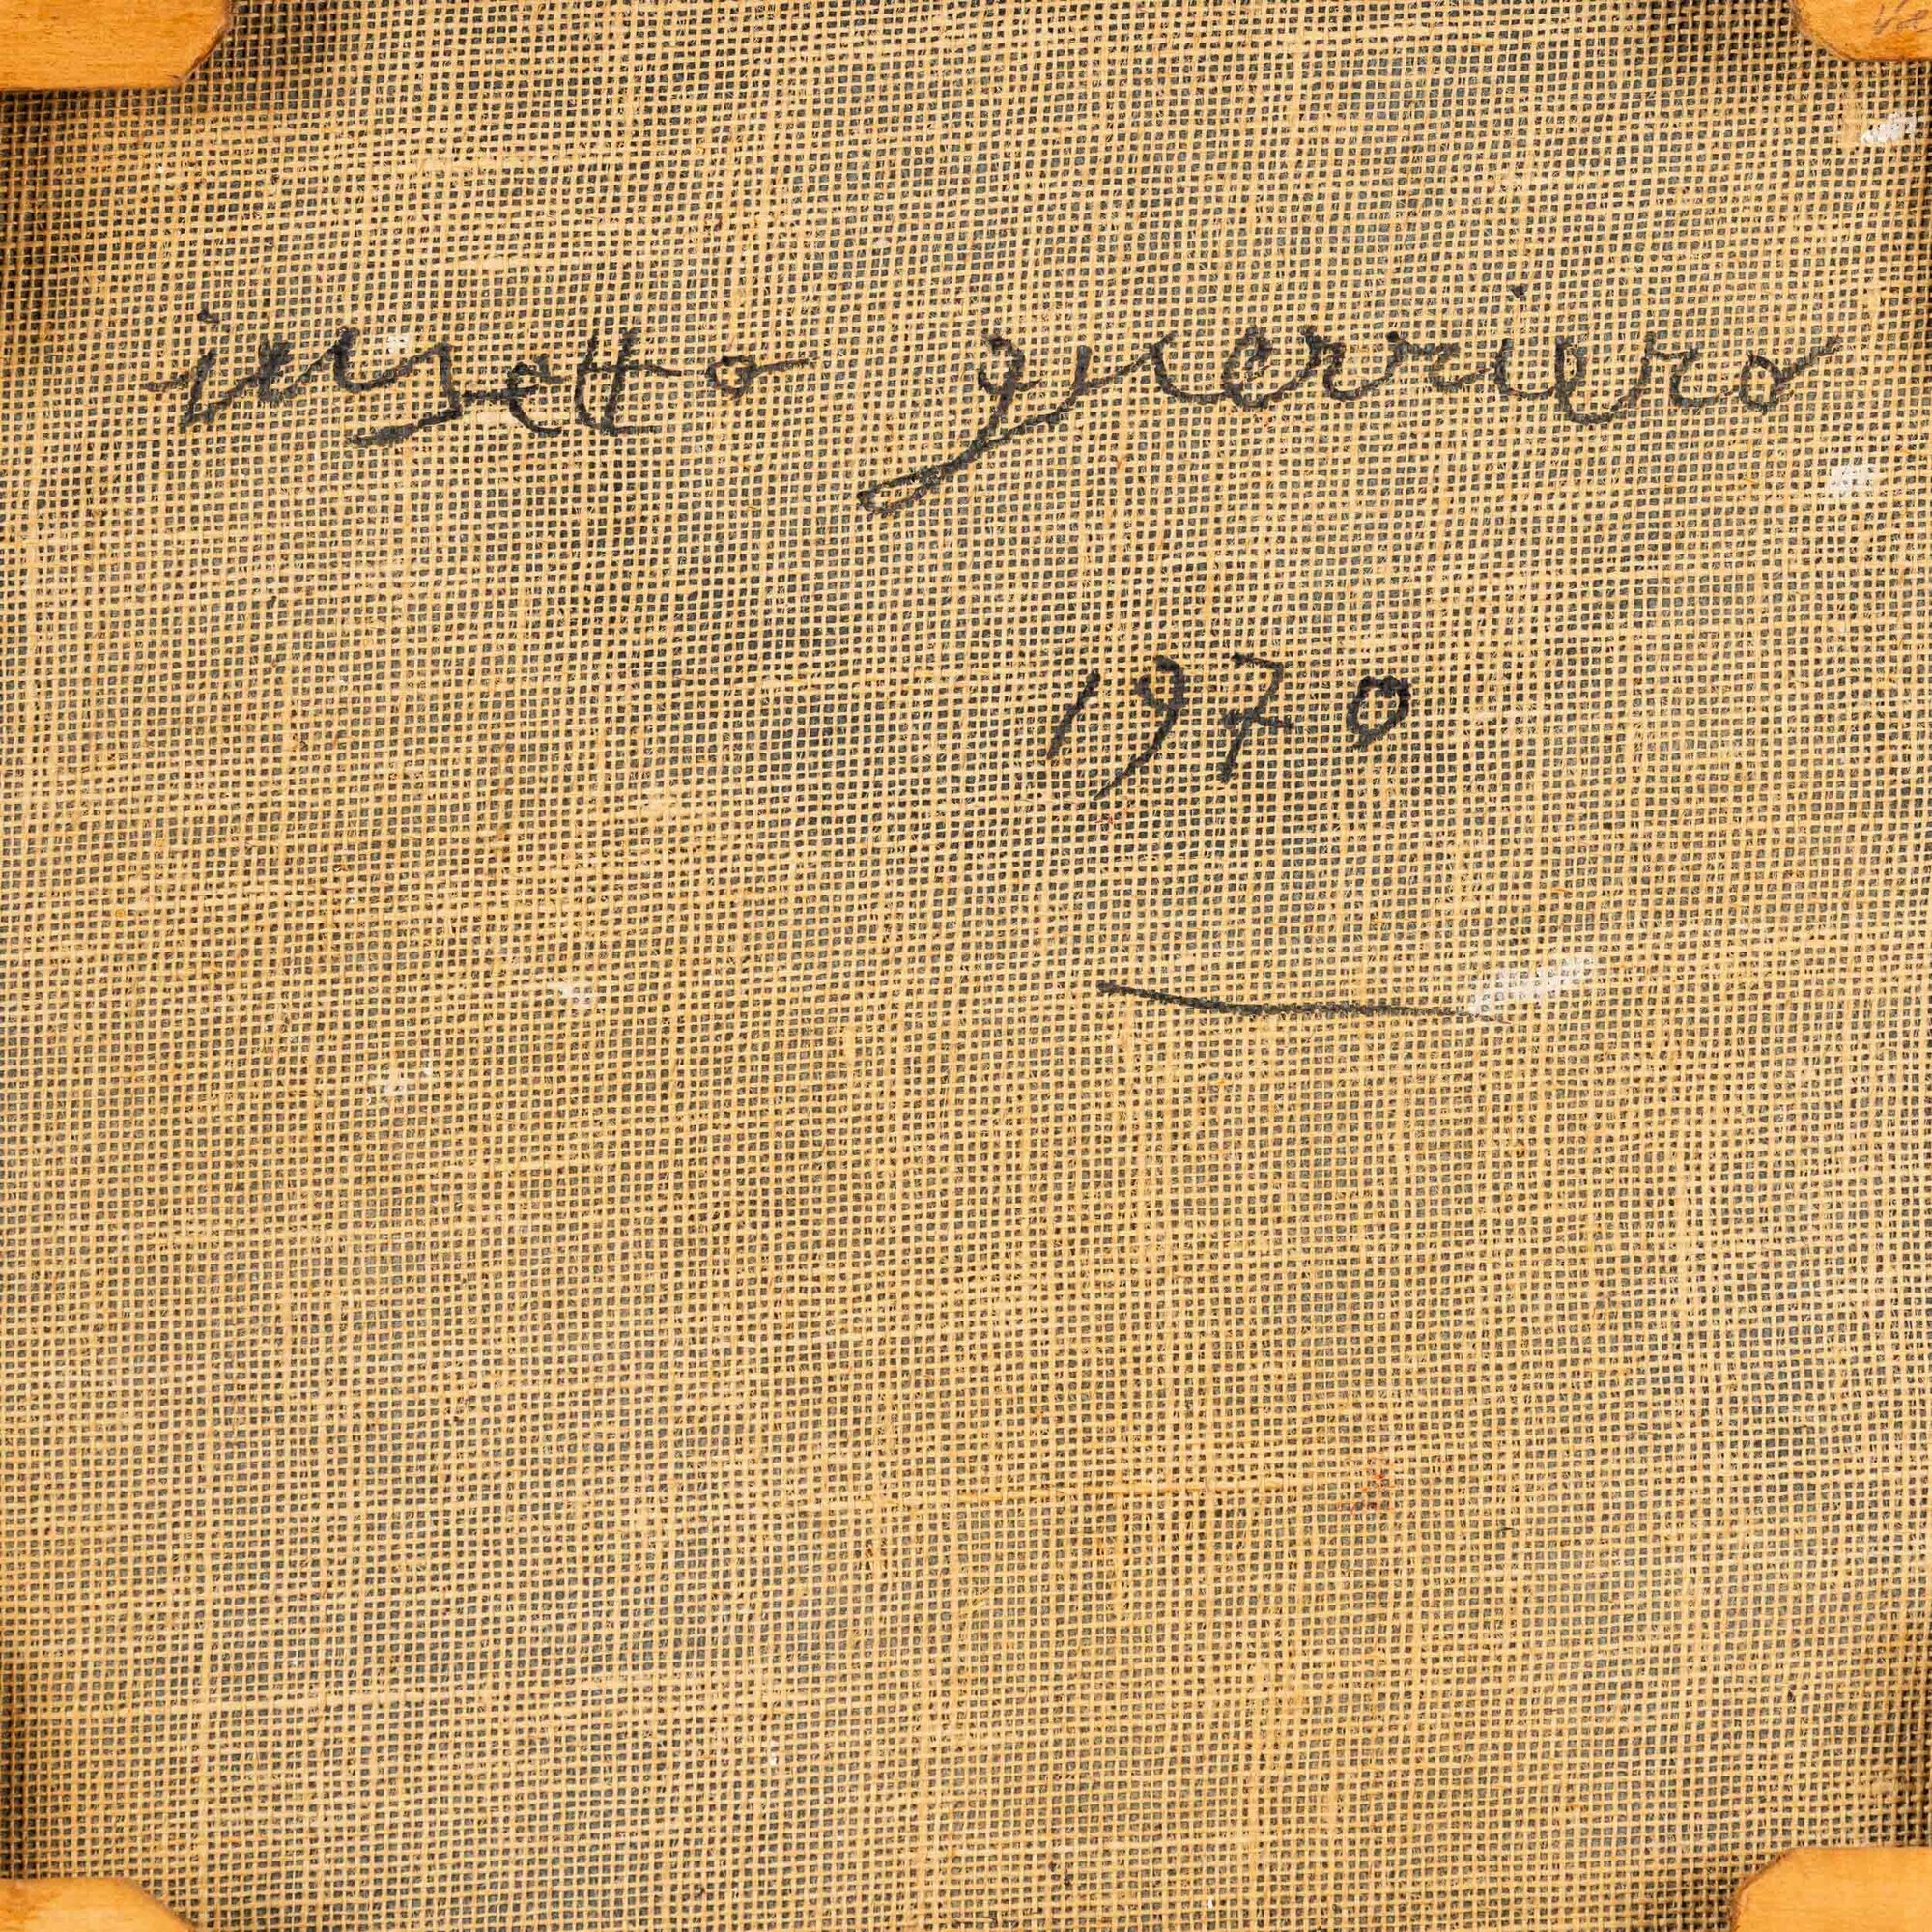 insetto guerriero
1970